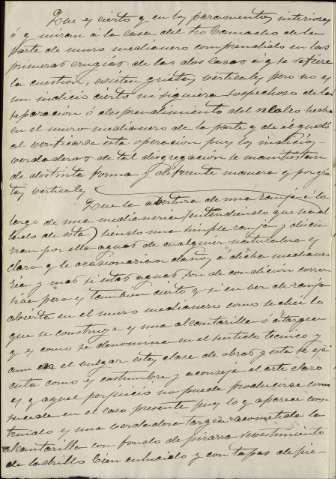 Que es cierto q en los paramentos interiores
ó q miran á la casa del Sto Camacho de la
parte de muro medianero comprendido en las
primeras crugias de las dos casas á q se refiere
la cuestion, existen grietas verticales pero no es
un indicio cierto ni siquiera sospechoso de la
separacion ó desprendimiento del
en el muro medianero de la parte q de él quedó
al verificarse esta operacion pues los indicios
verdaderos de tal disgregacion se manifiestan
de distinta forma y diferente manera q por grie-
tas verticales
Que la abertura de una zanja á lo
largo de una medianeria (entendiendo que es al
lado de esta) siendo una simple zanja y
por ella aguas de cualquier naturaleza es
claro q le ocasionarian daños á dicha mediane-
ria y mas si estas aguas son de condicion corro-
; pero es tambien cierto q si en vez de zanja
abierta en el muro medianero como se dice lo
que se construye es una alcantarilla ó atargea
q es como se denomina en el sentido tecnico y
aun en el vulgar esta clase de obras y esta se eje-
cuta como es costumbre y aconseja el arte claro
es q aquel perjuicio no puede producirse como
sucede en el caso presente pues lo q aparece cons-
truido es una verdadera targea acometida la
alcantarilla con fondo de pizarra revestimiento
de ladrillo bien enlucido y con tapas de pie-